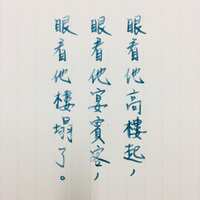 眼看他高樓起，
眼看他宴賓客，
眼看他樓塌了。